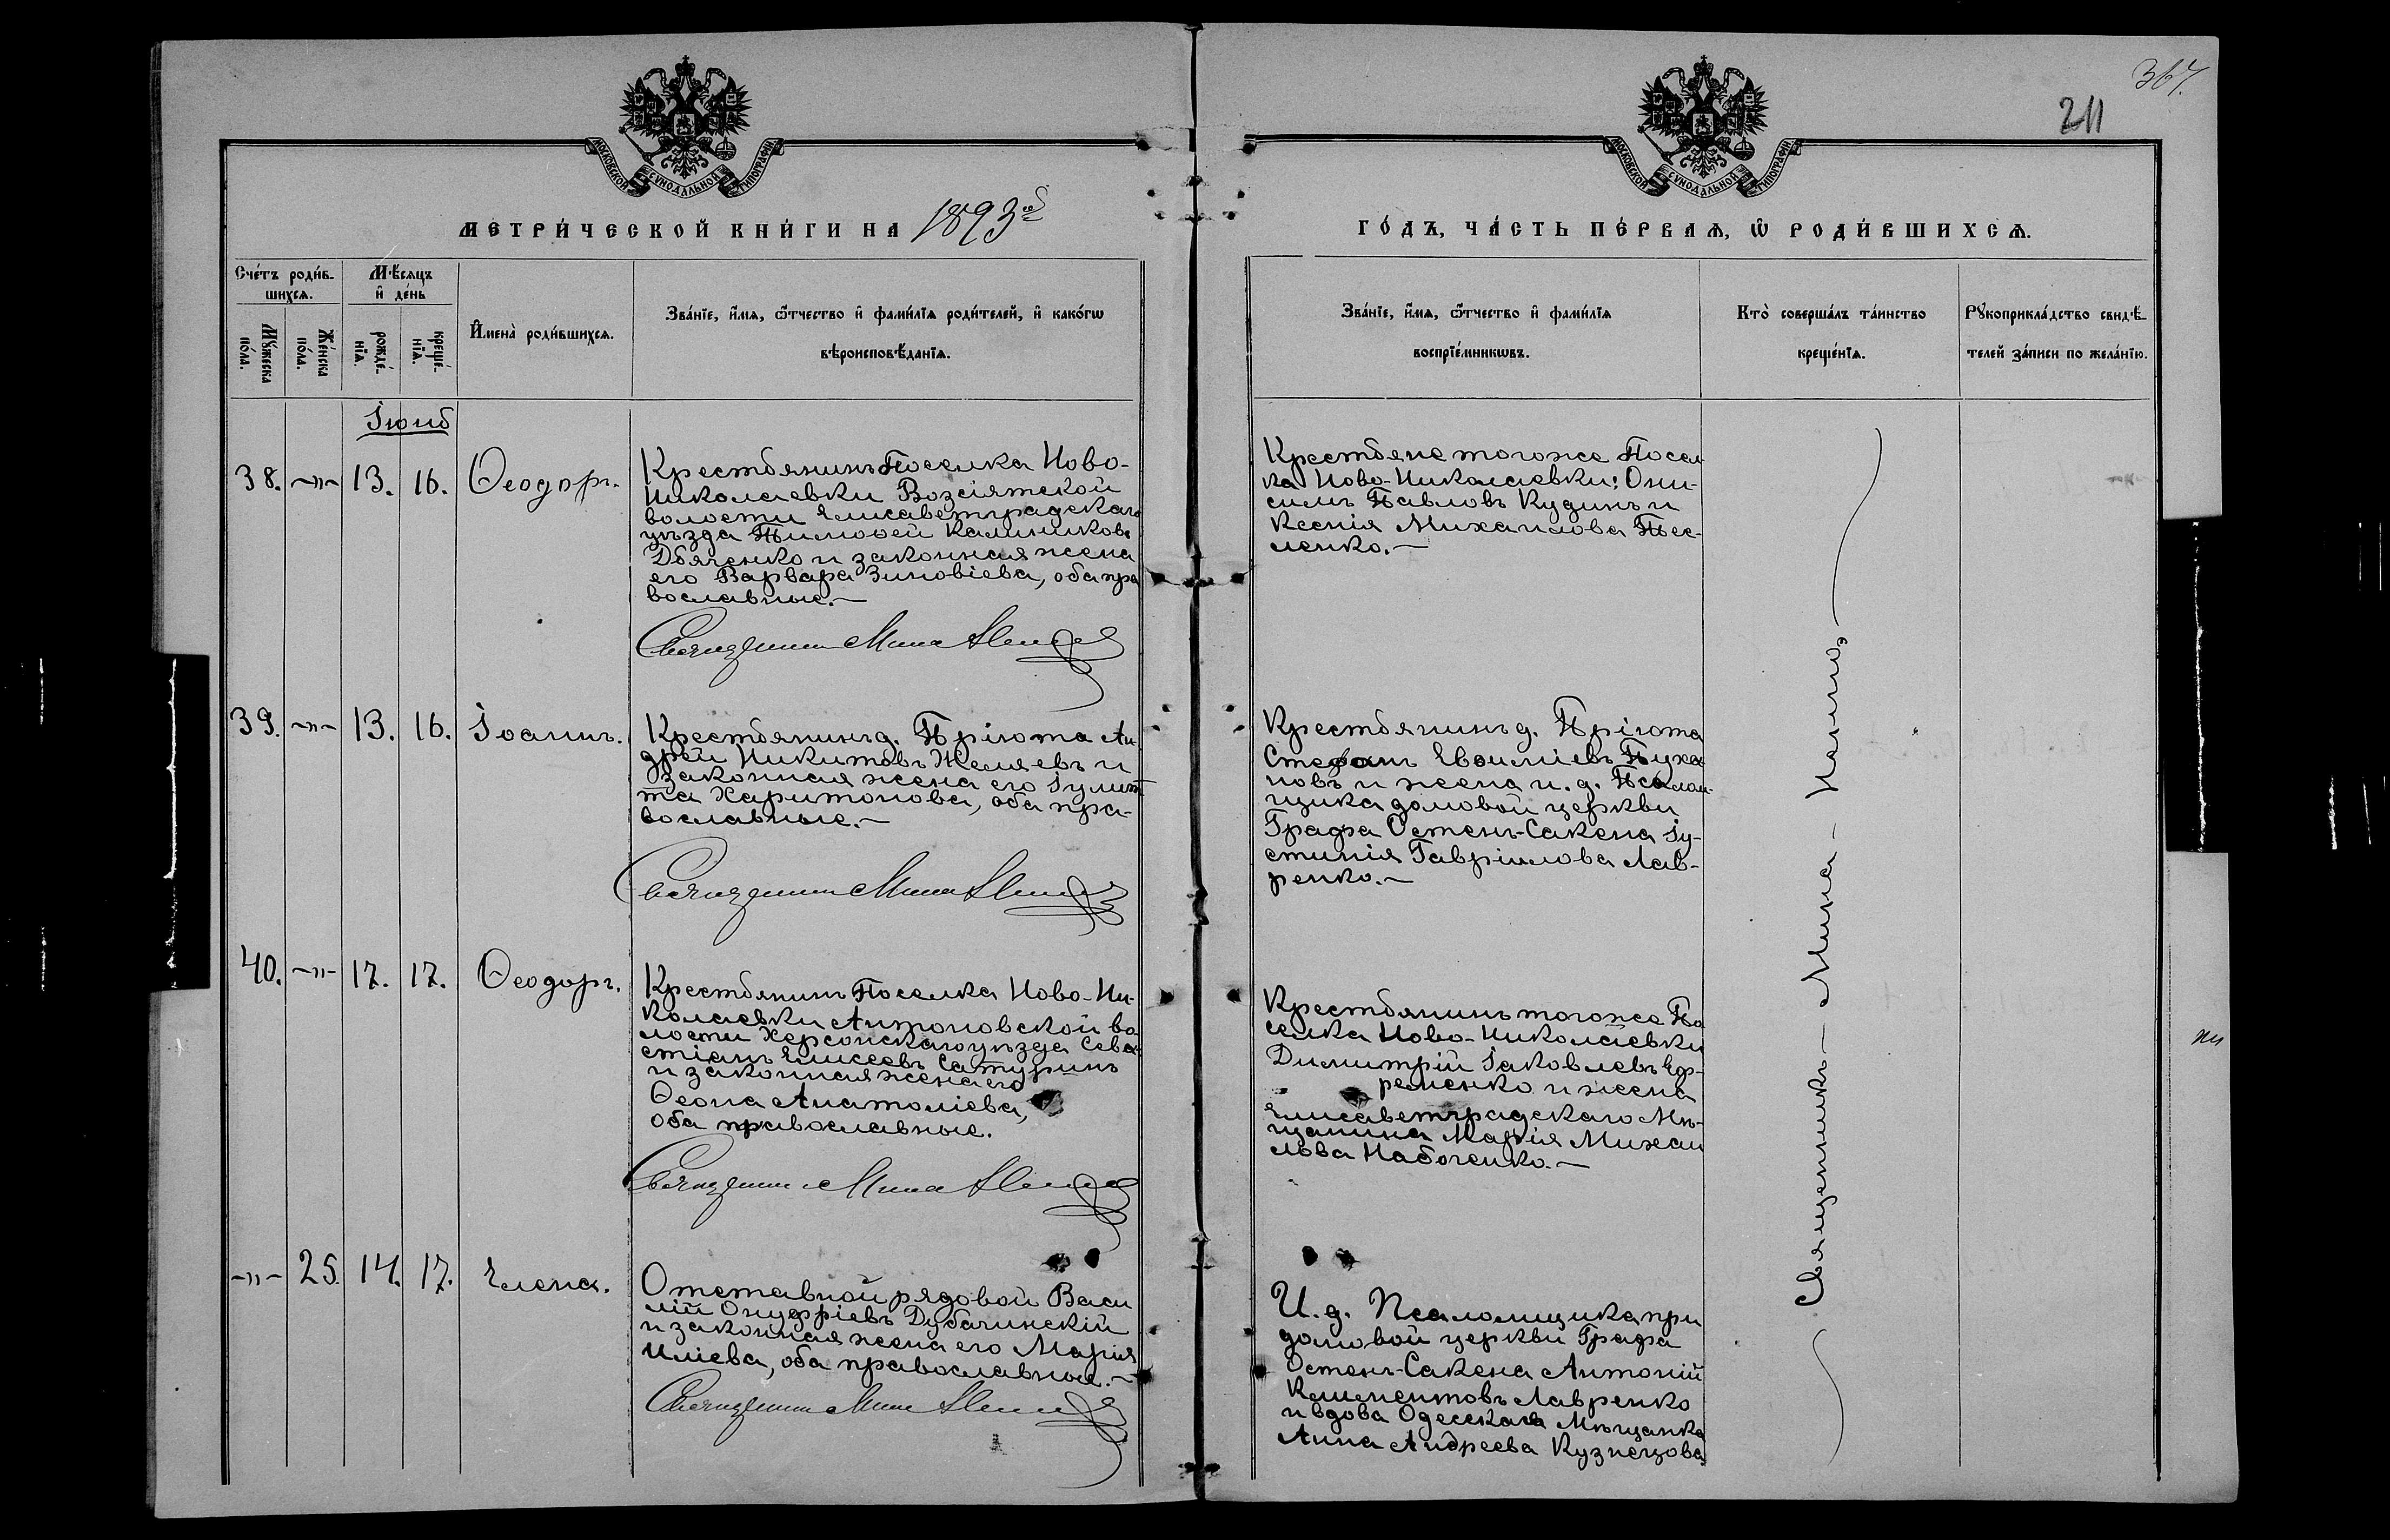 367.
211
МОСКОВСКОЙ СѴНОДАЛЬНОЙ ТИПОГРАФІИ
МОСКОВСКОЙ СѴНОДАЛЬНОЙ ТИПОГРАФІИ
МЕТРИ́ЧЕСКОЙ КНИ́ГИ НА 1893ій
ГО́ДЪ, ЧА́СТЬ ПЕ́РВАѦ, Ѡ҆ РОДИ́ВШИХСѦ.
Сче́тъ роди́в-
шихсѧ.
Мꙋ́жеска
по́ла.
Же́нска
по́ла.
Мѣ́сѧцъ
и҆ де́нь
рожде́-
нїѧ.
креще́-
нїѧ.
И҆мена̀ роди́вшихсѧ.
Зва́нїе, и҆́мѧ, ѻ҆́тчество и҆ фами́лїѧ роди́телей, и҆ како́гѡ
вѣроисповѣ́данїѧ.
Зва́нїе, и҆́мѧ, ѻ҆́тчество и҆ фами́лїѧ
воспрїе́мникѡвъ.
Кто̀ соверша́лъ та́инство
креще́нїѧ.
Рꙋкоприкла́дство свидѣ́-
телей за́писи по жела́нїю.
Іюнь
38. -"- 13. 16. Ѳеодоръ.
Крестьянинъ Поселка Ново-
Николаевки Возсіятской
волости Елисаветградскаго
уѣзда Тимоѳей Калиниковъ
Дьяченко и законная жена
его Варвара Зиновіева, оба пра
вославные.-
Священникъ Мина
Крестьяне тогоже Посел
ка Ново-Николаевки: Они-
симъ Павловъ Кудинъ и
Ксенія Михаилова Тес-
ленко.-
39. -"- 13. 16. Іоаннъ.
Крестьянинъ д. Пріюта Ан
дрей Никитовъ Желяевъ и
законная жена его Іулит
та Харитонова, оба пра-
вославные.-
Священникъ Мина
Крестьянинъ д. Пріюта
Стефанъ Евѳиміевъ Пуха
новъ и жена и. д. Псалом-
щика домовой церкви
Графа Остенъ-Сакена Іу-
стинія Гавріилова Лав-
ренко.-
40. -"- 17. 17. Ѳеодоръ.
Крестьянинъ Поселка Ново-Ни-
колаевки Антоновской во
лости Херсонскаго уѣзда Сева
стіанъ Елисеевъ Сатуринъ
и законная жена его
Ѳеона Анатоліева,
оба православные.
Священникъ Мина
Крестьянинъ тогоже По
селка Ново-Николаевки
Димитрій Іаковлевъ Еф-
ременко и жена
Елисаветградскаго Мѣ-
щанина Марія Михаи
лова Набоченко.-
-"- 25. 14. 17. Елена.
Отставной рядовой Васи
лій Онуфріевъ Дубачинскій
и законная жена его Марія
Иліева, оба православные.-
Священникъ Мина
И. д. Псаломщика при
домовой церкви Графа
Остенъ-Сакена Антоній
Климентовъ Лавренко
и вдова Одесская Мѣщанка
Анна Андреева Кузнецова
Священникъ - Мина -